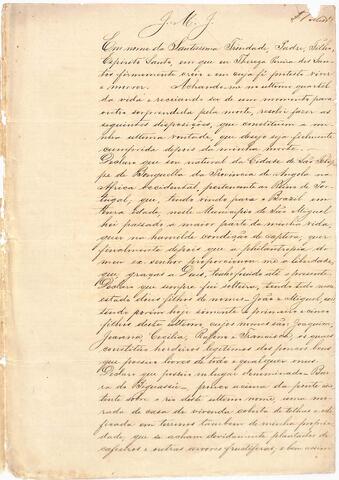 J. M. J.
Em nome da Santissima Trindade, Padre, Filho,
Espirito Santo, em que eu Thereza Vieira dos San-
tos firmemente creio e em cuja fé protesto viver
e morrer. Achando-me no ultimo quartel
da vida e receiando ser de um momento para
outro surprendida pela morte, resolvi fazer as
seguintes disposições, que constituem a mi-
nha ultima vontade, que desejo seja fielmente
cumprida depois da minha morte. —
Declaro que sou natural da Cidade de São Felip-
pe de Benguella da Provincia de Angola na
Africa Occidental, pertencente ao Reino de Por-
tugal, que, tendo vindo para o Brazil em
tenra idade, neste Municipio de São Miguel
hei passado a maior parte da minha vida
quer na humilde condição de captiva, quer
finalmente depois que a philantropia do
meu ex senhor proporcionou-me a liberdade,
que, graças a Deus, tenho fruido até o presente.
Declaro que sempre fui solteira, tendo tido nesse
estado dous filhos de nomes João e Miguel, exis-
tindo porém hoje somente o primeiro e cinco
filhos deste ultimo, cujos nomes são: Joaquim,
Joanna, Cecilia, Rufino e Francisco, os quaes
constituo herdeiros legitimos dos poucos bens
que possuo livres de todo e qualquer onus.
Declaro que possuo no lugar denominado Bar-
ra do Biguassú — pouco acima da ponte exis-
tente sobre o rio deste ultimo nome, uma mo-
rada de casa de vivenda coberta de telhas e edi-
ficada em terrenos tambem de minha proprie-
dade, que se acham devidamente plantados de
cafeeiros e outras arvores fructiferas, e bem assim